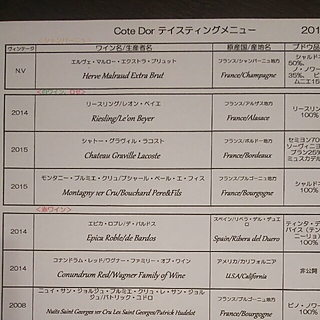 Cote Dor テイスティングメニュー 201
ヴィンテージ ワイン名/生産者名 原産国/産地名 ブドウ品
N.V
エルヴェ・マルロー・エクストラ・ブリュット
Herve Malraud Extra Brut
フランス/シャンパーニュ地方
France/Champagne
シャルドネ
50%、
ノ・ノワー
35%、ピ
ムニエ15
2014
リースリング/レオン・ベイエ
Riesling/Le'on Beyer
フランス/アルザス地方
France/Alsace
リースリン
100%
2015
シャトー・グラヴィル・ラコスト
Chateau Graville Lacoste
フランス/ボルドー地方
France/Bordeaux
セミヨン70
ソーヴィニヨ
ブラン25%
ミュスカデル
2015
モンタニー・プルミエ・クリュ/ブシャール・ペール・エ・フィス
Montagny 1er Cru/Bouchard Pere&Fils
フランス/ブルゴーニュ地方
France/Bourgogne
シャルドネ
100%
<赤ワイン>
2014
エピカ・ロブレ/デ・バルドス
Epica Roble/de Bardos
スペイン/リベラ・デル・デュエロ
Spain/Ribera del Duero
ティンタ・デ
パイス(テン
ニーリョ)
100%
2014
コナンドラム・レッド/ワグナー・ファミリー・オブ・ワイン
Conundrum Red/Wagner Family of Wine
アメリカ/カリフォルニア
U.S.A/California
非公開
2008
ニュイ・サン・ジョルジュ・プルミエ・クリュ・レ・サン・ジョルジュ/パトリック・ユドロ
Nuits Saint Georges 1er Cru Les Saint Georges/Patrick Hudelot
フランス/ブルゴーニュ地方
France/Bourgogne
ピノ・ノワー
100%